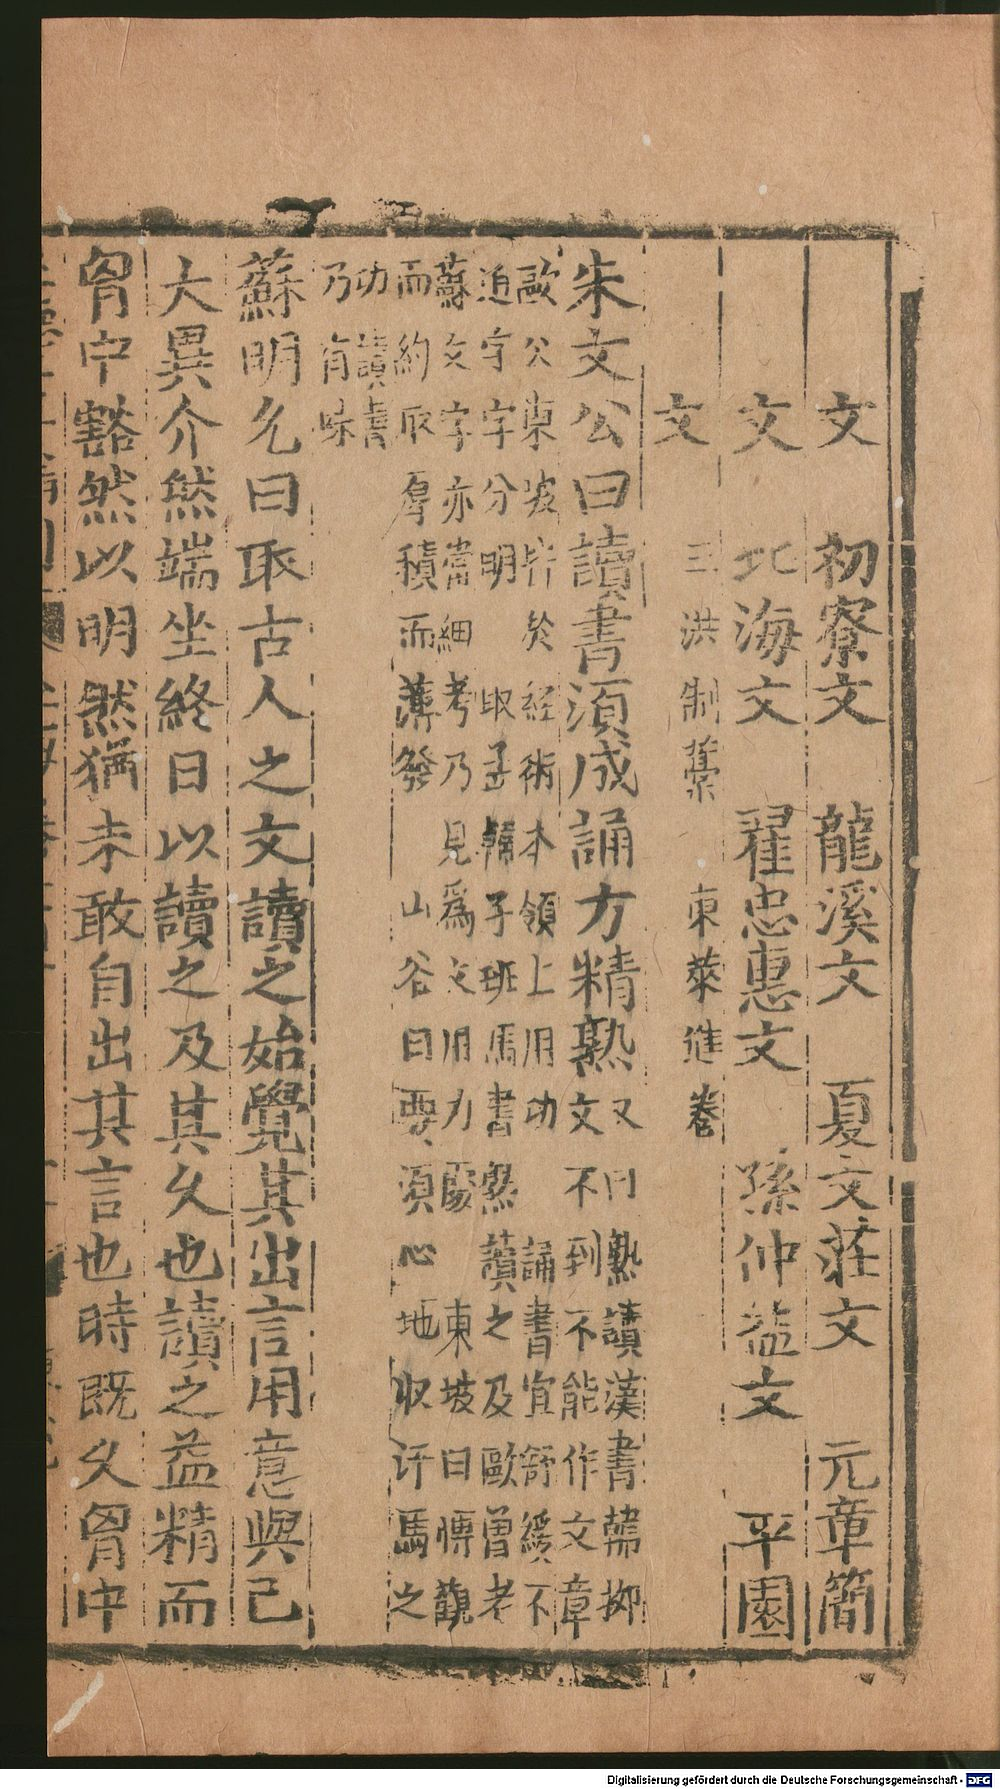 文　初寮文　龍溪文　夏文莊文　元章簡
文　北海文　翟忠惠文　孫仲益文　平園
文　三洪制藁　東萊進卷
朱文公曰讀書須成誦方精熟又曰熟讀漢書韓柳
文不到不能作文章
歐公東坡皆於經術本領上用功　誦書宜舒緩不
迫字字分明　取孟韓子班馬書熟讀之及歐曾老
蘇文字亦當細考乃見爲文用力處　東坡曰愽觀
而約取厚積而薄發　山谷曰要須心地收汗馬之
功讀書
乃有味
蘇明允曰取古人之文讀之始覺其出言用意與己
大異介然端坐終日以讀之及其久也讀之益精而
胷中豁然以明然猶未敢自出其言也時既久胷中
Digitalisierung gefördert durch die Deutsche Forschungsgemeinschaft - DFG